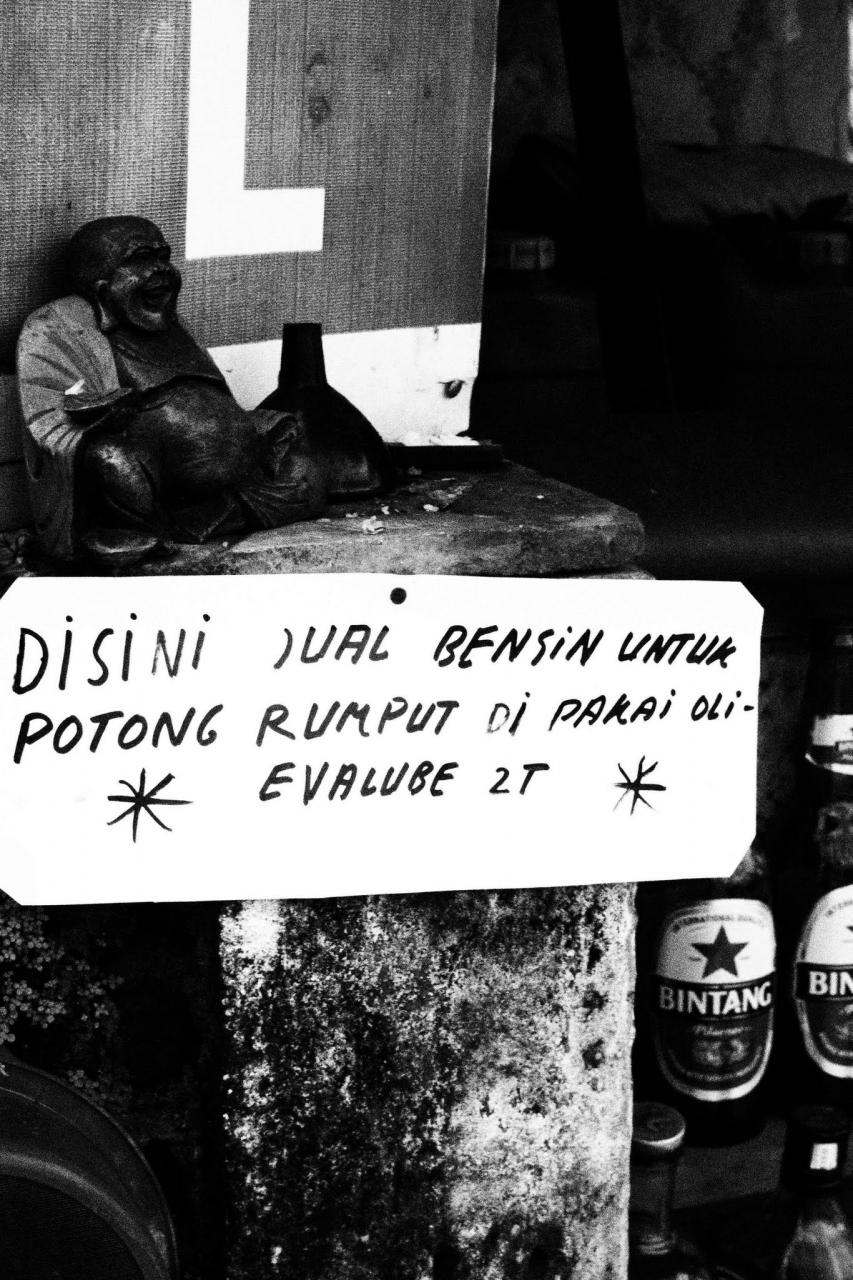 L
DISINI JUAL BENSIN UNTUK
POTONG RUMPUT DI PAKAI OLI-
EVALUBE 2T
BINTANG
Pilsener
BIN